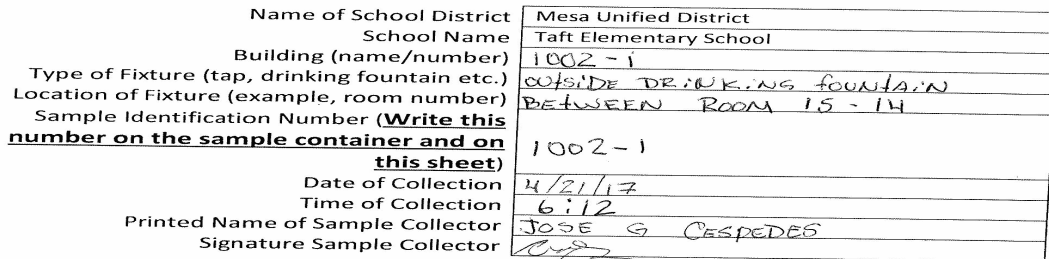 Name of School District Mesa Unified District
School Name Taft Elementary School
Building (name/number) 1002-1
Type of Fixture (tap, drinking fountain etc.) OUTSIDE DRINKING FOUNTAIN
Location of Fixture (example, room number) BETWEEN ROOM 15-14
Sample Identification Number (Write this
number on the sample container and on
this sheet) 1002-1
Date of Collection 4/21/17
Time of Collection 6:12
Printed Name of Sample Collector JOSE G CESPEDES
Signature Sample Collector